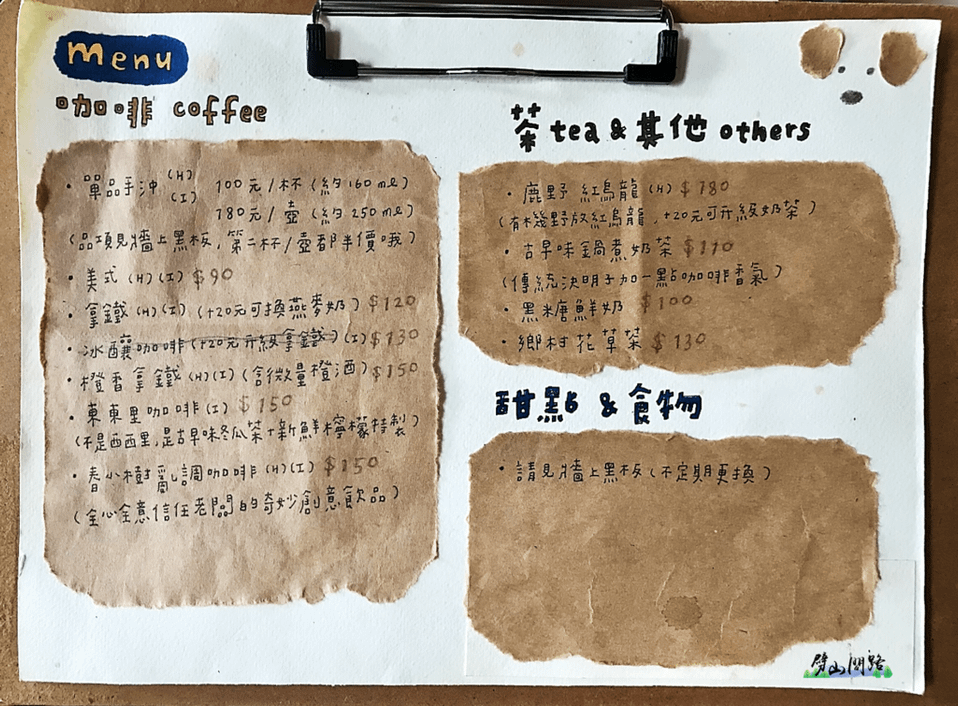 menu
咖啡 coffee
・單品手沖 (H) (I) 100元/杯(約160ml)
180元/壺(約250ml)
(品項見牆上黑板,第二杯/壺都半價哦)
・美式(H)(I) $90
・拿鐵(H)(I)(+20元可換燕麥奶) $120
・冰釀咖啡(+20元升級拿鐵)(I) $130
・橙香拿鐵(H)(I)(含微量橙酒) $150
・東東里咖啡(I) $150
(不是西西里,是古早味冬瓜茶+新鮮檸檬特製)
・春小樹亂調咖啡(H)(I) $150
(全心全意信任老闆的奇妙創意飲品)
茶 tea & 其他 others
・鹿野紅烏龍(H) $180
(有機野放紅烏龍,+20元可升級奶茶)
・古早味鍋煮奶茶 $110
(傳統決明子加一點咖啡香氣)
・黑糖鮮奶 $100
・鄉村花草茶 $130
甜點 & 食物
・請見牆上黑板(不定期更換)